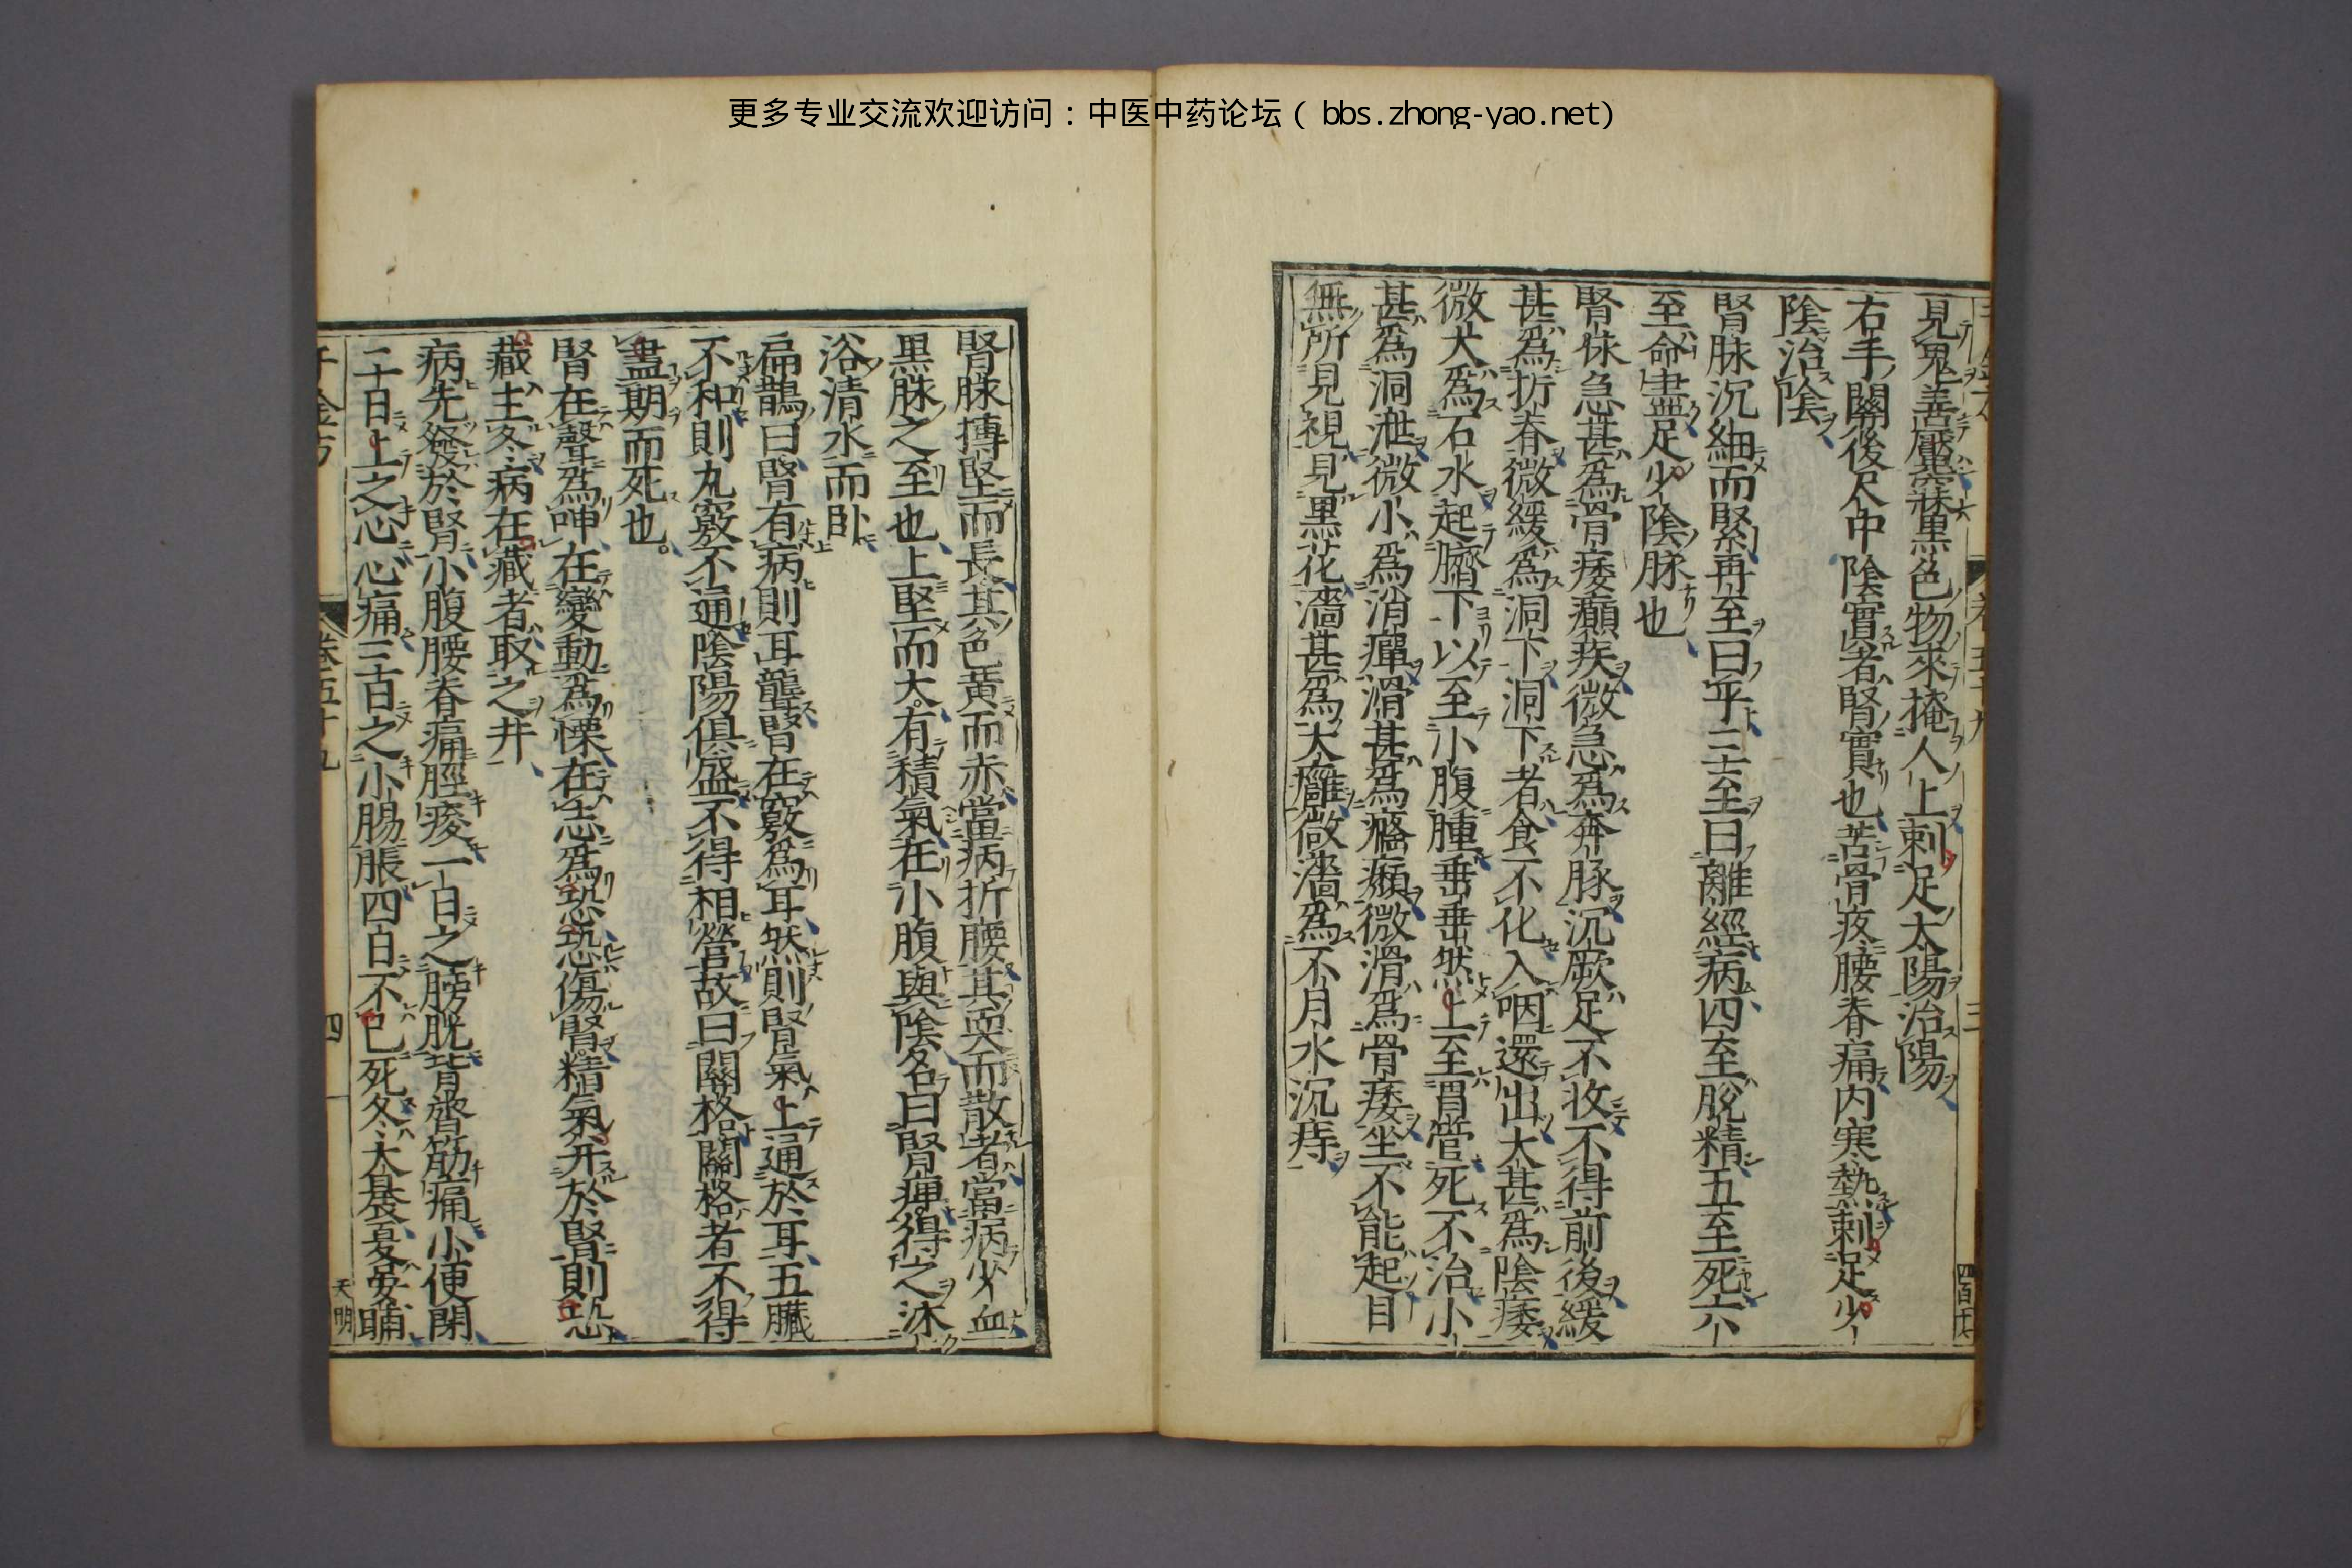 更多专业交流欢迎访问：中医中药论坛（bbs.zhong-yao.net)
見鬼善魘寐黑色物來掩人上刺足太陽治陽
右手關後尺中陰實者腎實也苦骨疼腰脊痛内寒熱刺足少
陰治陰
腎脉沉細而緊再至曰平三至曰離經病四至脫精五至死六
至命盡足少陰脉也
腎脉急甚爲骨痿癲疾微急爲奔豚沉厥足不收不得前後緩
甚爲折脊微緩爲洞下洞下者食不化入咽還出大甚爲陰痿
微大爲石水起臍下以至小腹腫垂垂然上至胃管死不治小
甚爲洞泄微小爲消癉滑甚爲癃㿗微滑爲骨痿坐不能起目
無所見視見黑花濇甚爲大癰微濇爲不月水沉痔
腎脉搏堅而長其色黄而赤當病折腰其耎而散者當病少血
黑脉之至也上堅而大有積氣在小腹與陰名曰腎痺得之沐
浴清水而臥
扁鵲曰腎有病則耳聾腎在竅爲耳然則腎氣上通於耳五臟
不和則九竅不通陰陽俱盛不得相營故曰關格關格者不得
盡期而死也
腎在聲爲呻在變動爲慄在志爲恐恐傷腎精氣并於腎則恐
藏主冬病在藏者取之井
病先發於腎小腹腰脊痛脛痠一日之膀胱背膂筋痛小便閉
二日上之心心痛三日之小腸脹四日不已死冬大晨夏晏晡
千金方
卷五十九
四
天明
三